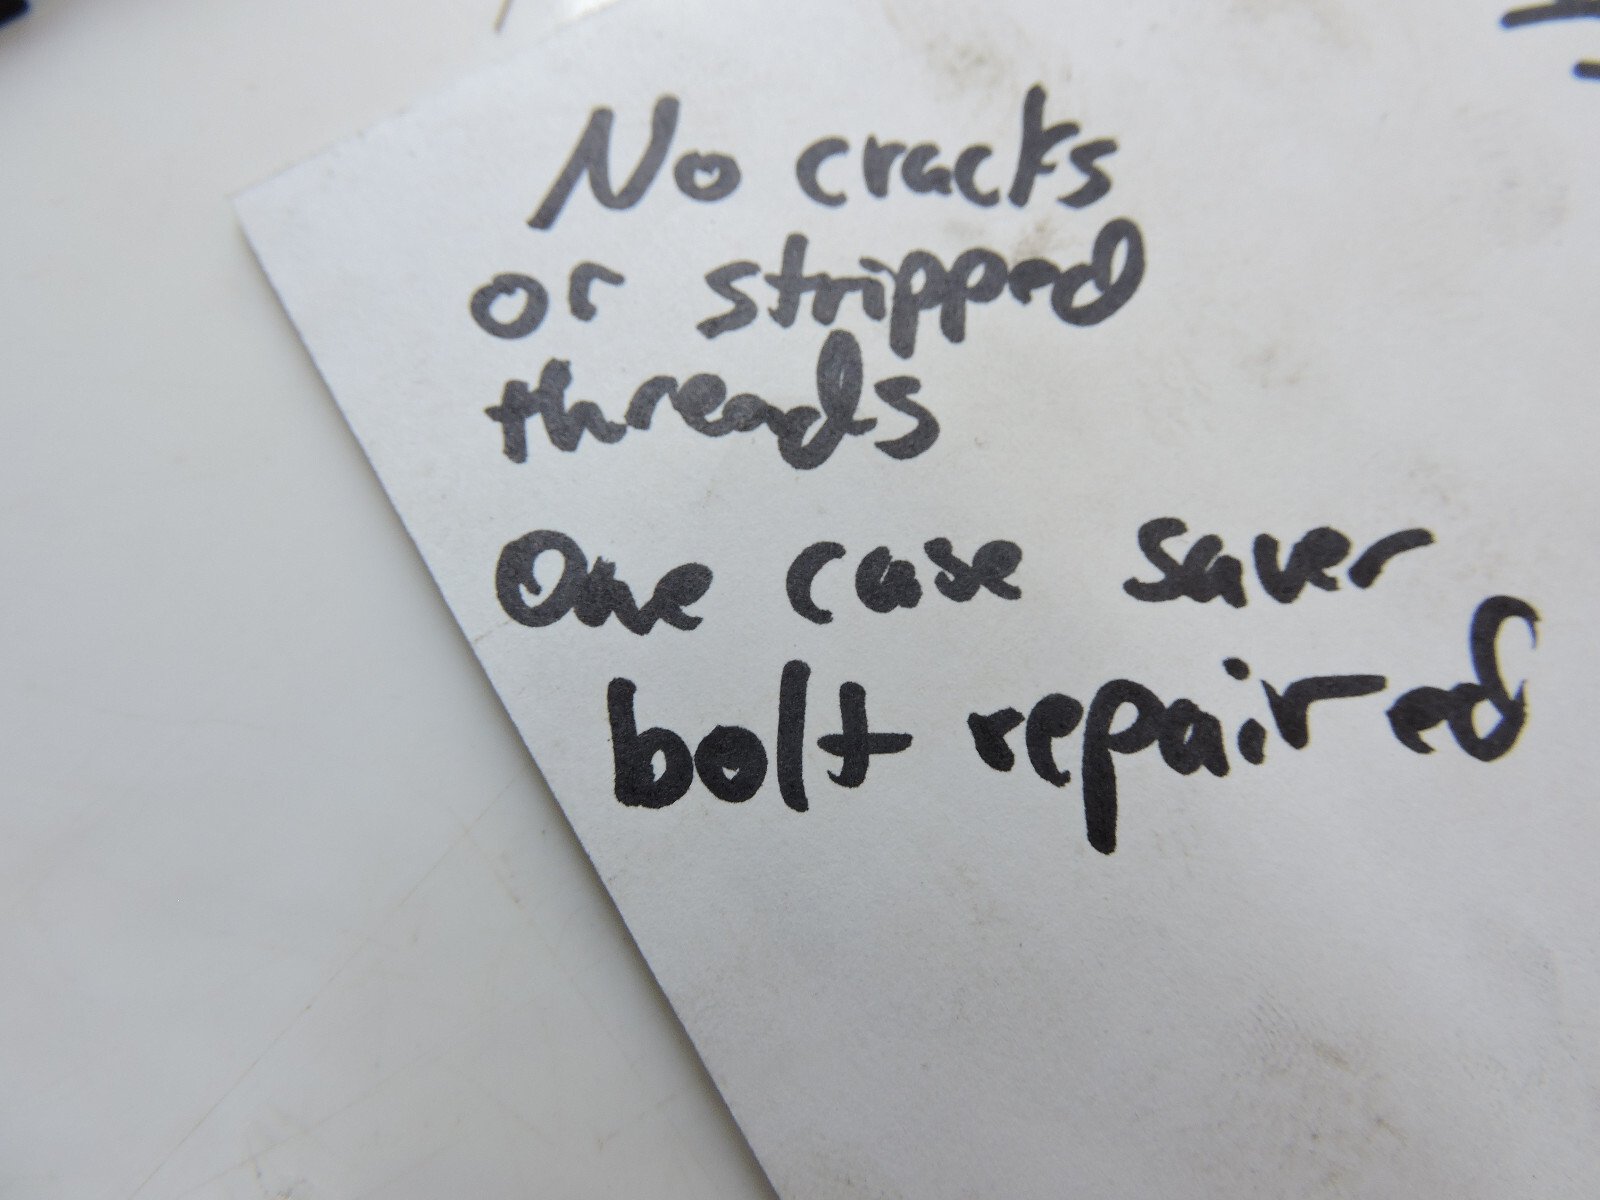 No cracks
or stripped
threads
One case saver
bolt repaired